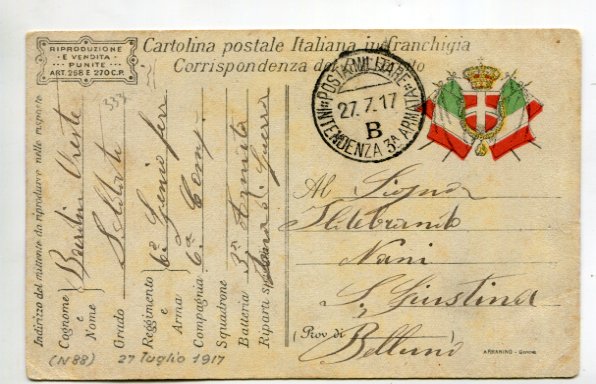 RIPRODUZIONE
E VENDITA
PUNITE
ART. 268 E 270 C.P.
Cartolina postale Italiana in franchigia
Corrispondenza del
POSTA MILITARE
27.7.17
B
INTENDENZA 3ª ARMATA
333
Indirizzo del mittente da riprodurre nelle risposte
Cognome e Nome Oreste
Grado Soldato
Reggimento e Arma 6° Genio ferr
Compagnia 6a Comp.
Squadrone
Batteria 3a Armata
Riparti s Zona di Guerra
Al Signor
Ildebrando
Nani
S. Giustina
(Prov. di
Belluno
(N88) 27 Luglio 1917